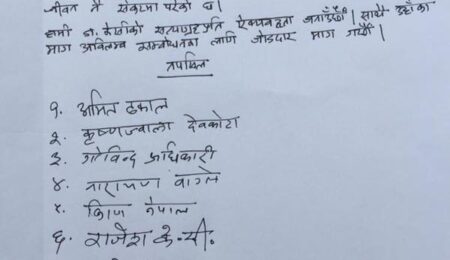 जीवन नै संकटमा परेको छ।
हामी डा. केसीको सत्याग्रहप्रति ऐक्यबद्धता जनाउँछौं। साथै उहाँका
माग अविलम्ब सम्बोधनका लागि जोडदार माग गर्छौं।
तपसिल
१. अमित ढकाल
२. कृष्णज्वाला देवकोटा
३. गोविन्द अधिकारी
४. नारायण वाग्ले
५. किरण नेपाल
६. राजेश के.सी.